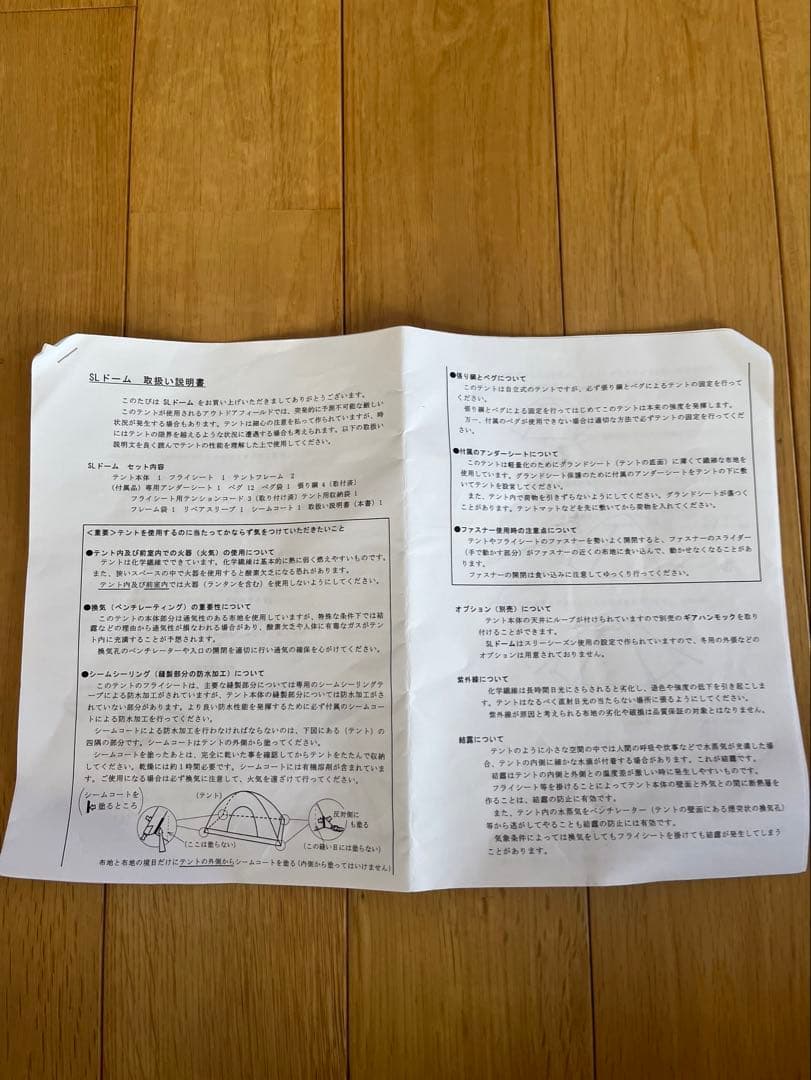 SLドーム 取扱い説明書
このたびは SLドーム をお買い上げいただきましてありがとうございます。
このテントが使用されるアウトドアフィールドでは、突発的に予測不可能な厳しい
状況が発生する場合もあります。テントは細心の注意を払って作られていますが、時
にはテントの限界を越えるような状況に遭遇する場合も考えられます。以下の取扱い
説明文を良く読んでテントの性能を理解した上で使用してください。
SLドーム セット内容
テント本体 1 フライシート 1 テントフレーム 2
(付属品)専用アンダーシート 1 ペグ 12 ペグ袋 1 張り綱 4(取付済)
フライシート用テンションコード 3(取り付け済)テント用収納袋 1
フレーム袋 1 リペアスリーブ 1 シームコート 1 取扱い説明書(本書)1
<重要>テントを使用するのに当たってかならず気をつけていただきたいこと
●テント内及び前室内での火器(火気)の使用について
テントは化学繊維でできています。化学繊維は基本的に熱に弱く燃えやすいものです。
また、狭いスペースの中で火器を使用すると酸素欠乏になる恐れがあります。
テント内及び前室内では火器(ランタンを含む)を使用しないようにしてください。
●換気(ベンチレーティング)の重要性について
このテントの本体部分は通気性のある布地を使用していますが、特殊な条件下では結
露などの理由から通気性が損なわれる場合があり、酸素欠乏や人体に有毒なガスがテン
ト内に充満することが予想されます。
換気孔のベンチレーターや入口の開閉を適切に行い通気の確保を心がけてください。
●シームシーリング(縫製部分の防水加工)について
このテントのフライシートは、主要な縫製部分については専用のシームシーリングテ
ープによる防水加工がされていますが、テント本体の縫製部分については防水加工がさ
れていない部分があります。より良い防水性能を発揮するために必ず付属のシームコー
トによる防水加工を行ってください。
シームコートによる防水加工を行わなければならないのは、下図にある(テント)の
四隅の部分です。シームコートはテントの外側から塗ってください。
シームコートを塗ったあとは、完全に乾いた事を確認してからテントをたたんで収納
してください。乾燥には約1時間必要です。シームコートには有機溶剤が含まれていま
す。ご使用になる場合は必ず換気に注意して、火気を遠ざけて行ってください。
シームコートを
塗るところ
(テント)
反対側に
も塗る
(ここは塗らない)
(この縫い目には塗らない)
布地と布地の境目だけにテントの外側からシームコートを塗る(内側から塗ってはいけません)
●張り綱とペグについて
このテントは自立式のテントですが、必ず張り綱とペグによるテントの固定を行って
ください。
張り綱とペグによる固定を行ってはじめてこのテントは本来の強度を発揮します。
万一、付属のペグが使用できない場合は適切な方法で必ずテントの固定を行ってくだ
さい。
●付属のアンダーシートについて
このテントは軽量化のためにグランドシート(テントの底面)に薄くて繊細な布地を
使用しています。グランドシート保護のために付属のアンダーシートをテントの下に敷
いてテントを設営してください。
また、テント内で荷物を引きずらないようにしてください。グランドシートが傷つく
ことがあります。テントマットなどを先に敷いてから荷物を入れてください。
●ファスナー使用時の注意点について
テントやフライシートのファスナーを勢いよく開閉すると、ファスナーのスライダー
(手で動かす部分)がファスナーの近くの布地に食い込んで、動かせなくなることがあ
ります。
ファスナーの開閉は食い込みに注意してゆっくり行ってください。
オプション(別売)について
テント本体の天井にループが付けられていますので別売のギアハンモックを取り
付けることができます。
SLドームはスリーシーズン使用の設定で作られていますので、冬用の外張などの
オプションは用意されておりません。
紫外線について
化学繊維は長時間日光にさらされると劣化し、退色や強度の低下を引き起こしま
す。テントはなるべく直射日光の当たらない場所に張るようにしてください。
紫外線が原因と考えられる布地の劣化や破損は品質保証の対象とはなりません。
結露について
テントのように小さな空間の中では人間の呼吸や炊事などで水蒸気が充満した場
合、テントの内側に細かな水滴が付着する場合があります。これが結露です。
結露はテントの内側と外側との温度差が激しい時に発生しやすいものです。
フライシート等を掛けることによってテント本体の壁面と外気との間に断熱層を
作ることは、結露の防止に有効です。
また、テント内の水蒸気をベンチレーター(テントの壁面にある煙突状の換気孔)
等から逃がしてやることも結露の防止には有効です。
気象条件によっては換気をしてもフライシートを掛けても結露が発生してしまう
ことがあります。